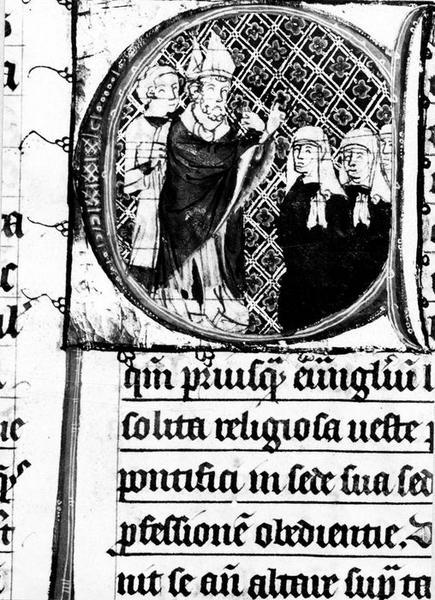 qm̄ priusq̄ eūngliū l
solita religiosa ueste p
pontifici in sede sua sed
ꝓfessionē obedientie. D
nit se an̄ altare sup̄ ta